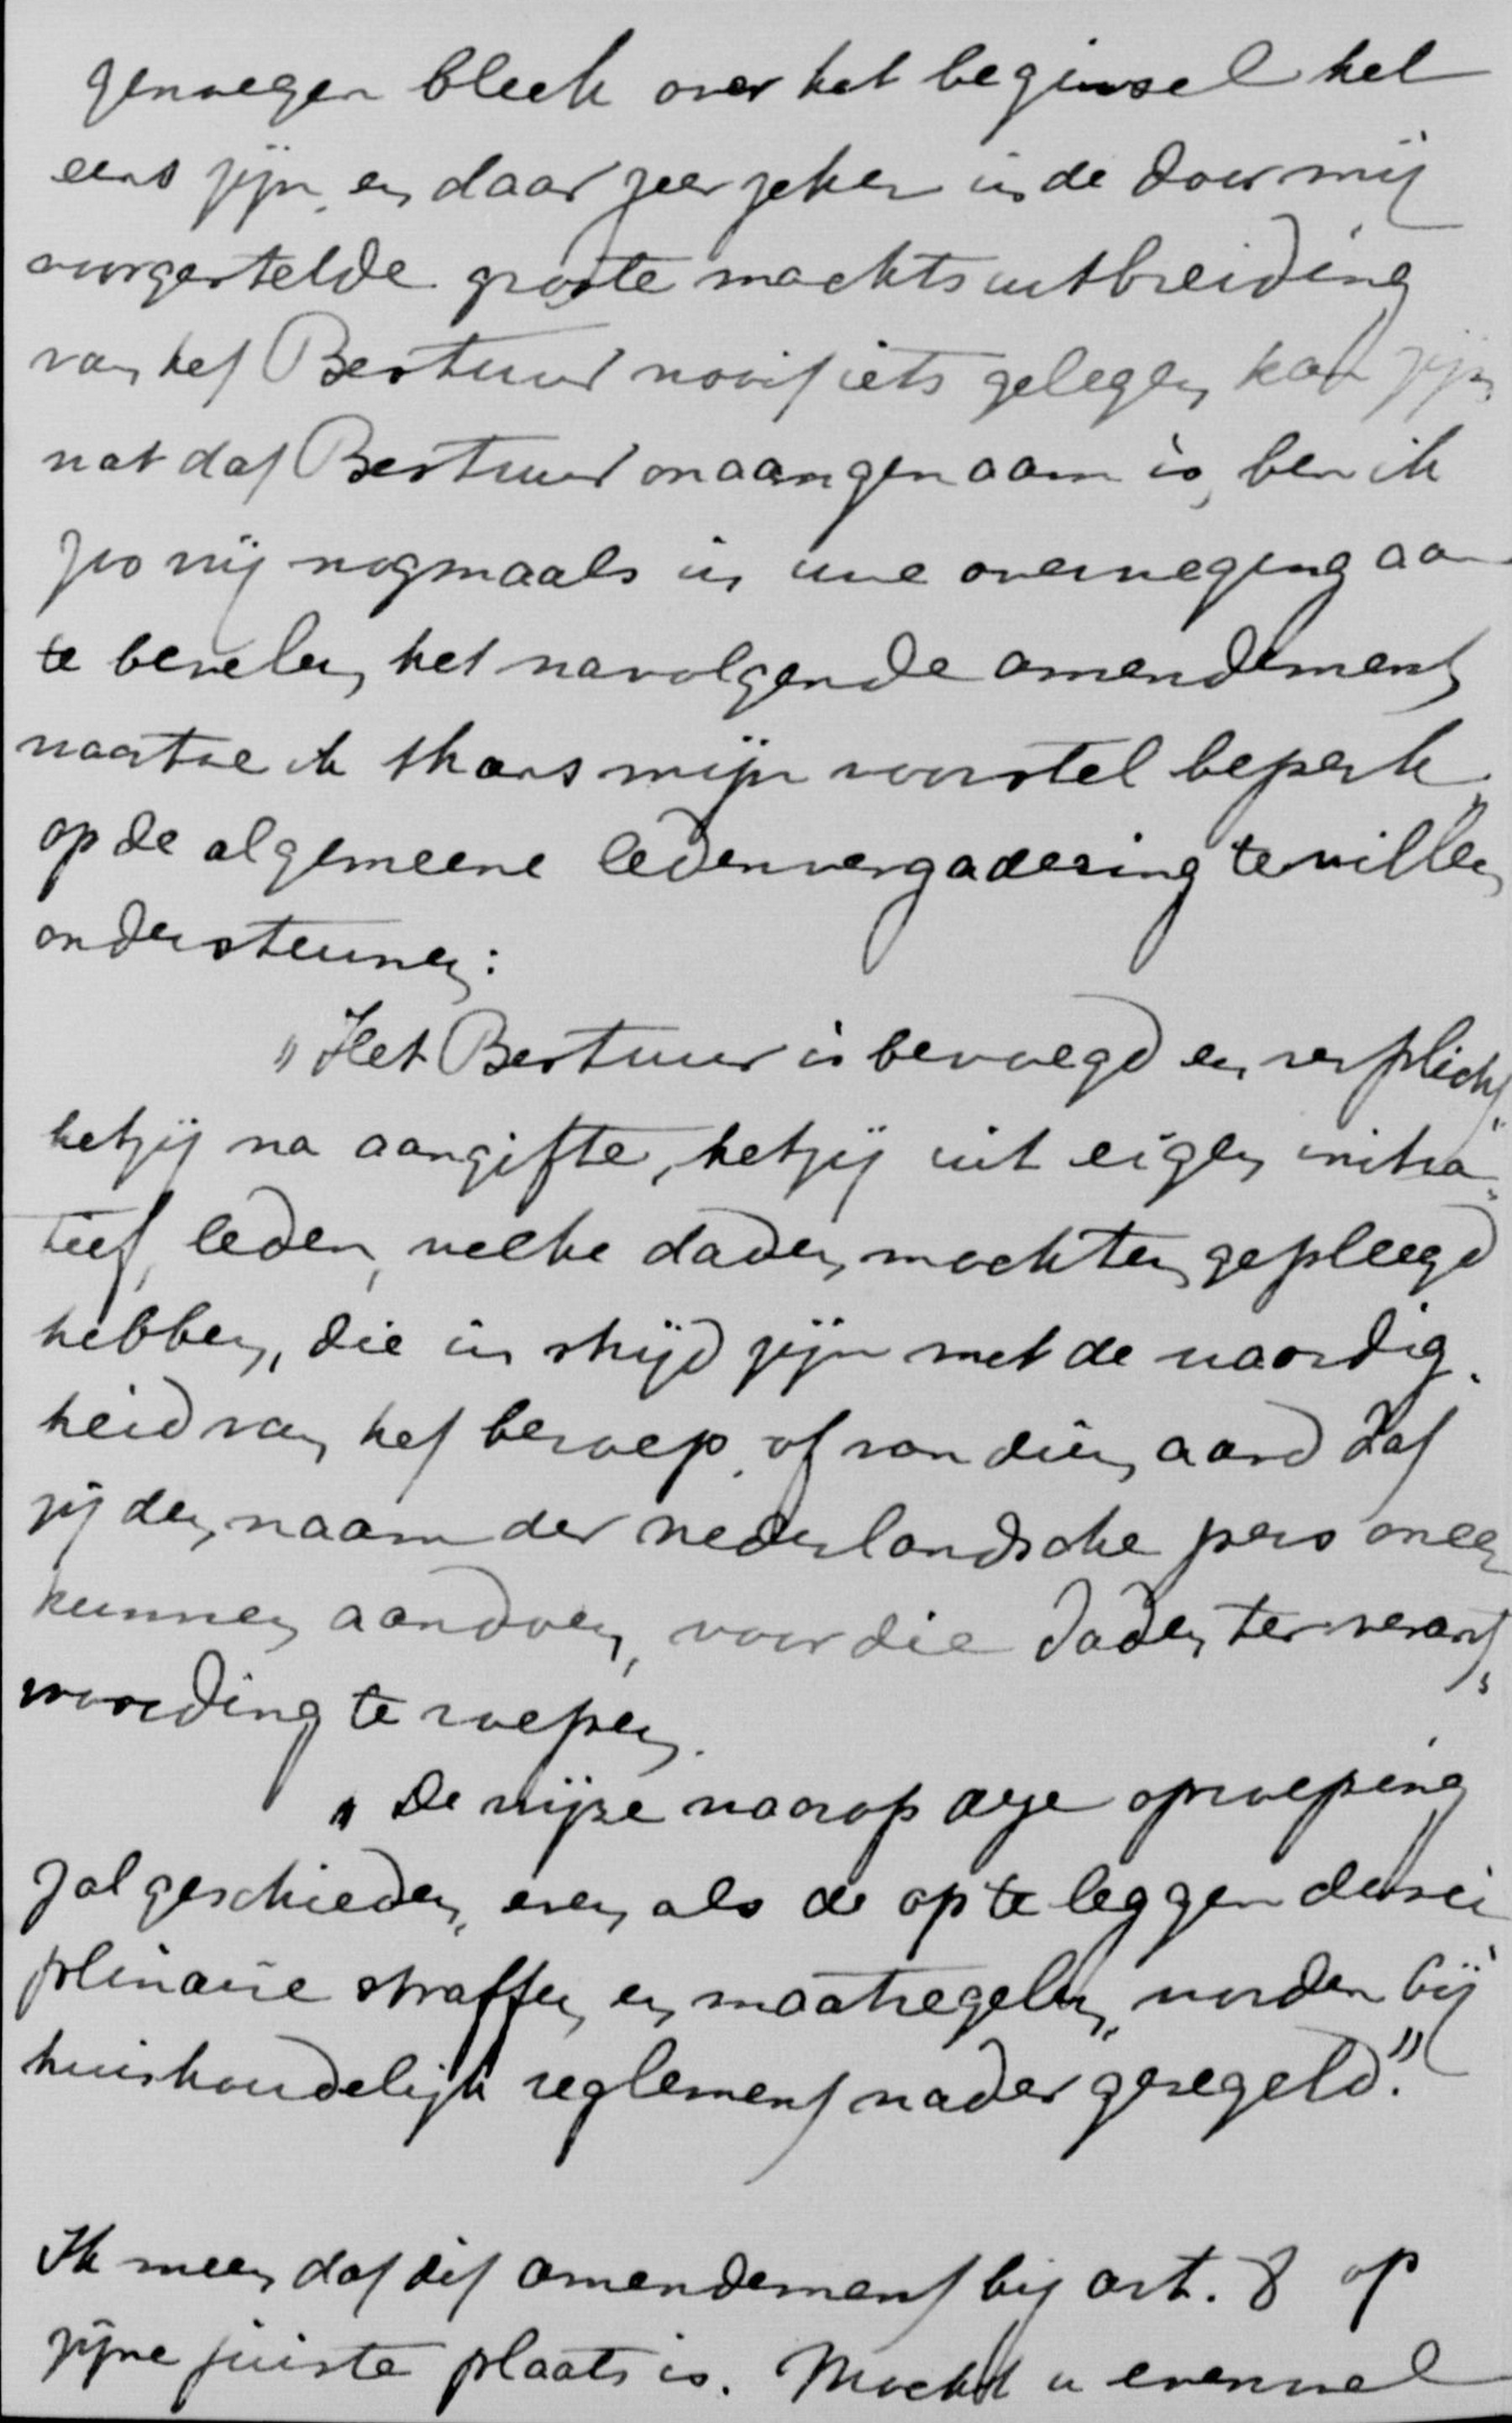 genoegen bleek over het beginsel het
eens zijn, en daar zeer zeker in de door mij
voorgestelde groote machtsuitbreiding
van het Bestuur nooit iets gelegen kan zijn
wat dat Bestuur onaangenaam is, ben ik
zoo vrij nogmaals in uwe overweging aan
te bevelen, het navolgende amendement
waartoe ik thans mijn voorstel beperk,
op de algemeene ledenvergadering te willen
ondersteunen:
„Het Bestuur is bevoegd en verplicht,
hetzij na aangifte, hetzij uit eigen initia„
tief, leden, welke daden mochten gepleegd
hebben, die in strijd zijn met de waardig„
heid van het beroep, of van dien aard dat
zij den naam der nederlandsche pers oneer
kunnen aandoen, voor die daden ter verant„
woording te roepen.
„De wijze waarop deze oproeping
zal geschieden, even als de op te leggen disci
plinaire straffen en maatregelen, worden bij
huishoudelijk reglement nader geregeld."
Ik meen dat dit amendement bij art. 8 op
zijne juiste plaats is. Mocht u evenwel